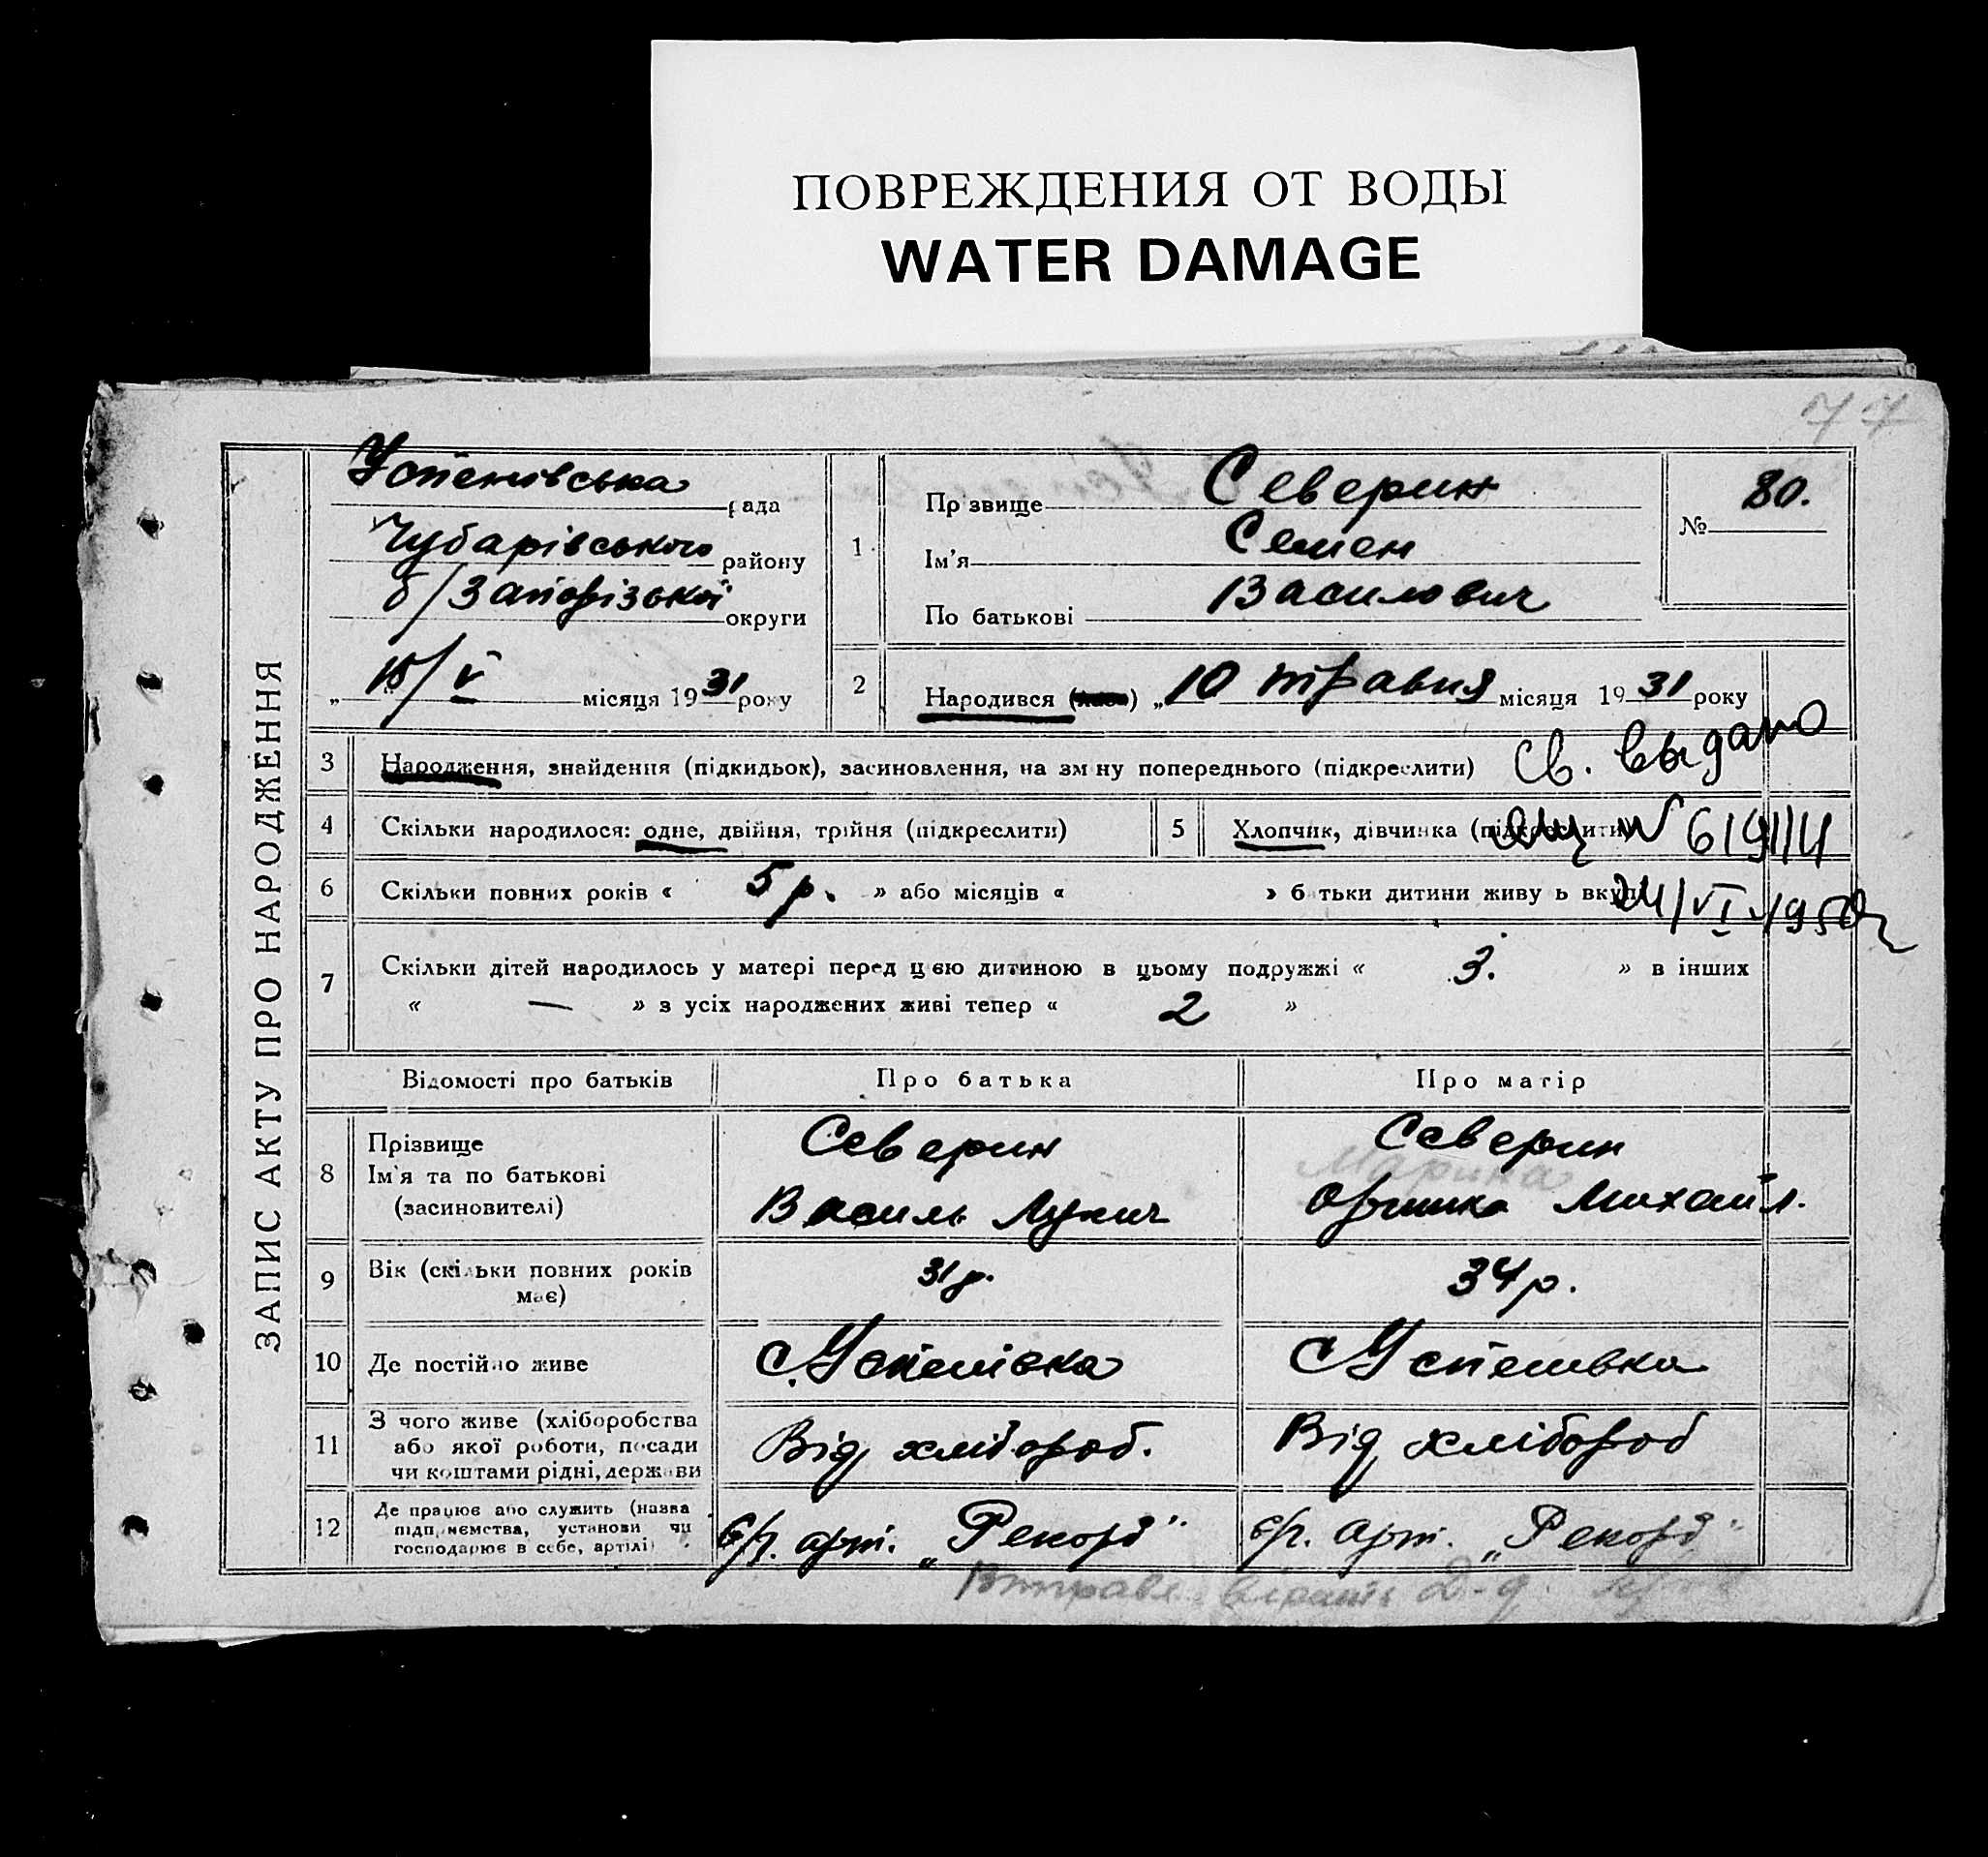 ПОВРЕЖДЕНИЯ ОТ ВОДЫ
WATER DAMAGE
77
ЗАПИС АКТУ ПРО НАРОДЖЕННЯ
Успенівська рада
Чубарівського району
б/Запорізької округи
„ 15/V місяця 1931 року
1
Прізвище Северин
Ім'я Семен
По батькові Василович
№ 80.
2
Народився () „ 10 травня місяця 1931 року
3 Народження, знайдення (підкидьок), засиновлення, на зміну попереднього (підкреслити)
Св. выдано
4 Скільки народилося: одне, двійня, трійня (підкреслити)
5 Хлопчик, дівчинка (підкреслити)
№ 619114
6 Скільки повних років « 5 р. » або місяців « » батьки дитини живуть вкупі
24/VI 1950г
7 Скільки дітей народилось у матері перед цією дитиною в цьому подружжі « 3. » в інших
« — » з усіх народжених живі тепер « 2 »
Відомості про батьків Про батька Про матір
8 Прізвище
Ім'я та по батькові
(засиновителі)
Северин
Василь Лукич
Северин
Марина
Оришка Михайл.
9 Вік (скільки повних років
має)
31 р.
34 р.
10 Де постійно живе
с. Успенівка
с Успенівка
11 З чого живе (хліборобства
або якої роботи, посади
чи коштами рідні, держави
Від хлібороб.
Від хлібороб
12 Де працює або служить (назва
підприємства, установи чи
господарює в себе, артілі)
арт. „Рекорд"
арт. „Рекорд"